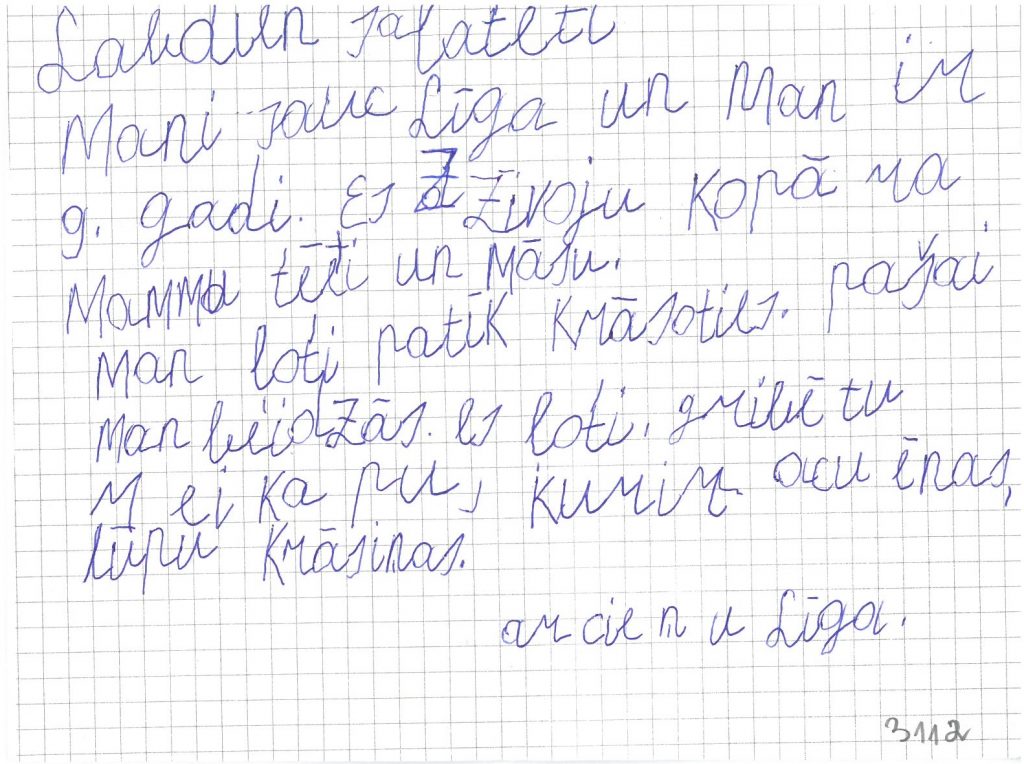 Labdien salatēti
Mani sauc Līga un Man ir
9. gadi. Es Dzīvoju Kopā ra
Mammu tēti un Māsu.
Man loti patīk Krāsoties. pašai
man beidzās. Es loti. gribētu
M ei Ka pu, kurir acu ēnas,
lūpu Krāsiņas.
ar cie ņ u Līga.
3112